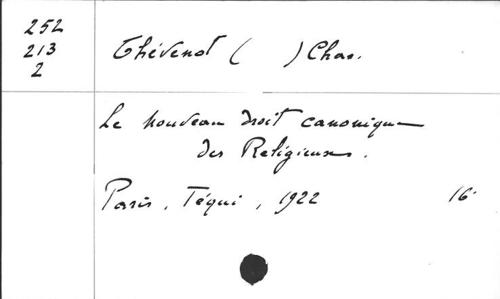 252
213
2
Thévenot ( ) Chas.
Le nouveau droit canonique
des Religieuses.
Paris, Téqui, 1922 16°